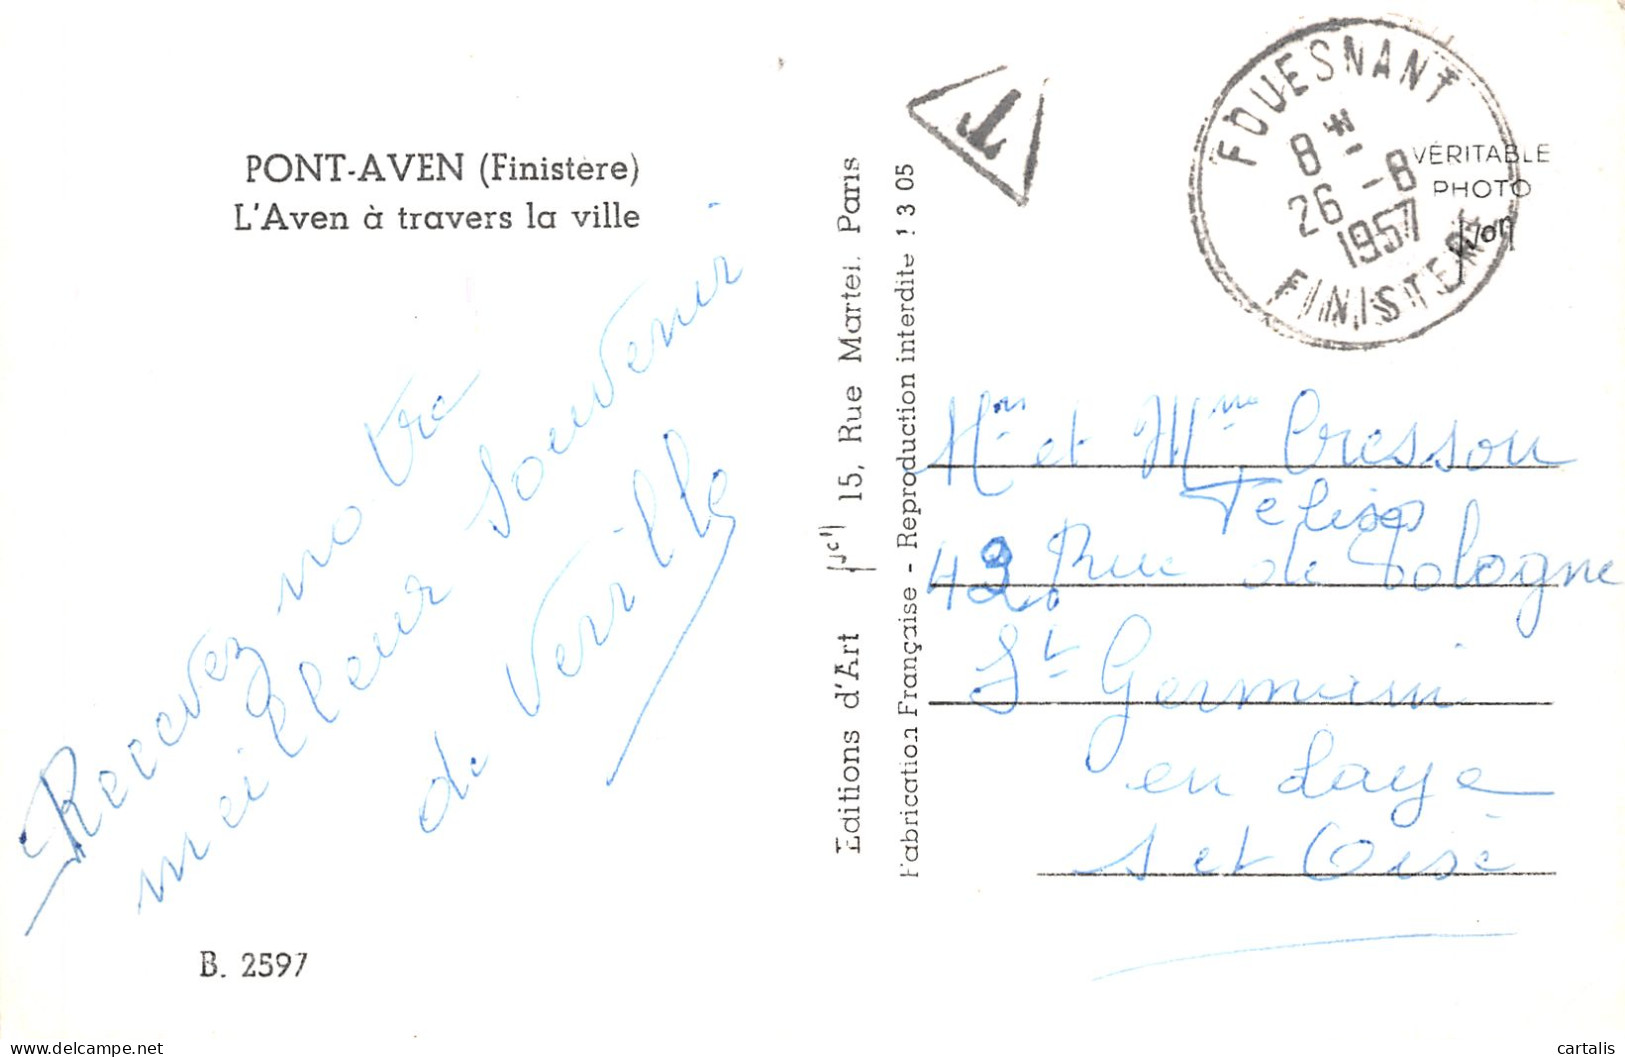 PONT-AVEN (Finistère)
L'Aven à travers la ville
Recevez notre
meilleur souvenir
de Verville
B. 2597
Editions d'Art 15, Rue Martel. Paris
Fabrication Française - Reproduction interdite 1 3 05
T
FOUESNANT
8 H
26 - 8
1957
FINISTERE
VÉRITABLE
PHOTO
Yvon
Mr et Mme Cresson
Felix
43 Rue de Pologne
St Germain
en Laye
S et Oise
cartalis
www.delcampe.net